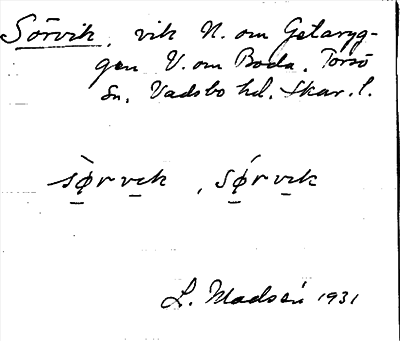 Sörvik, vik N. om Getaryg-
gen V. om Boda. Torsö
sn. Vadsbo hd. Skar. l.
sø̀rvɩk , sǿrvɩk
L. Madsén 1931